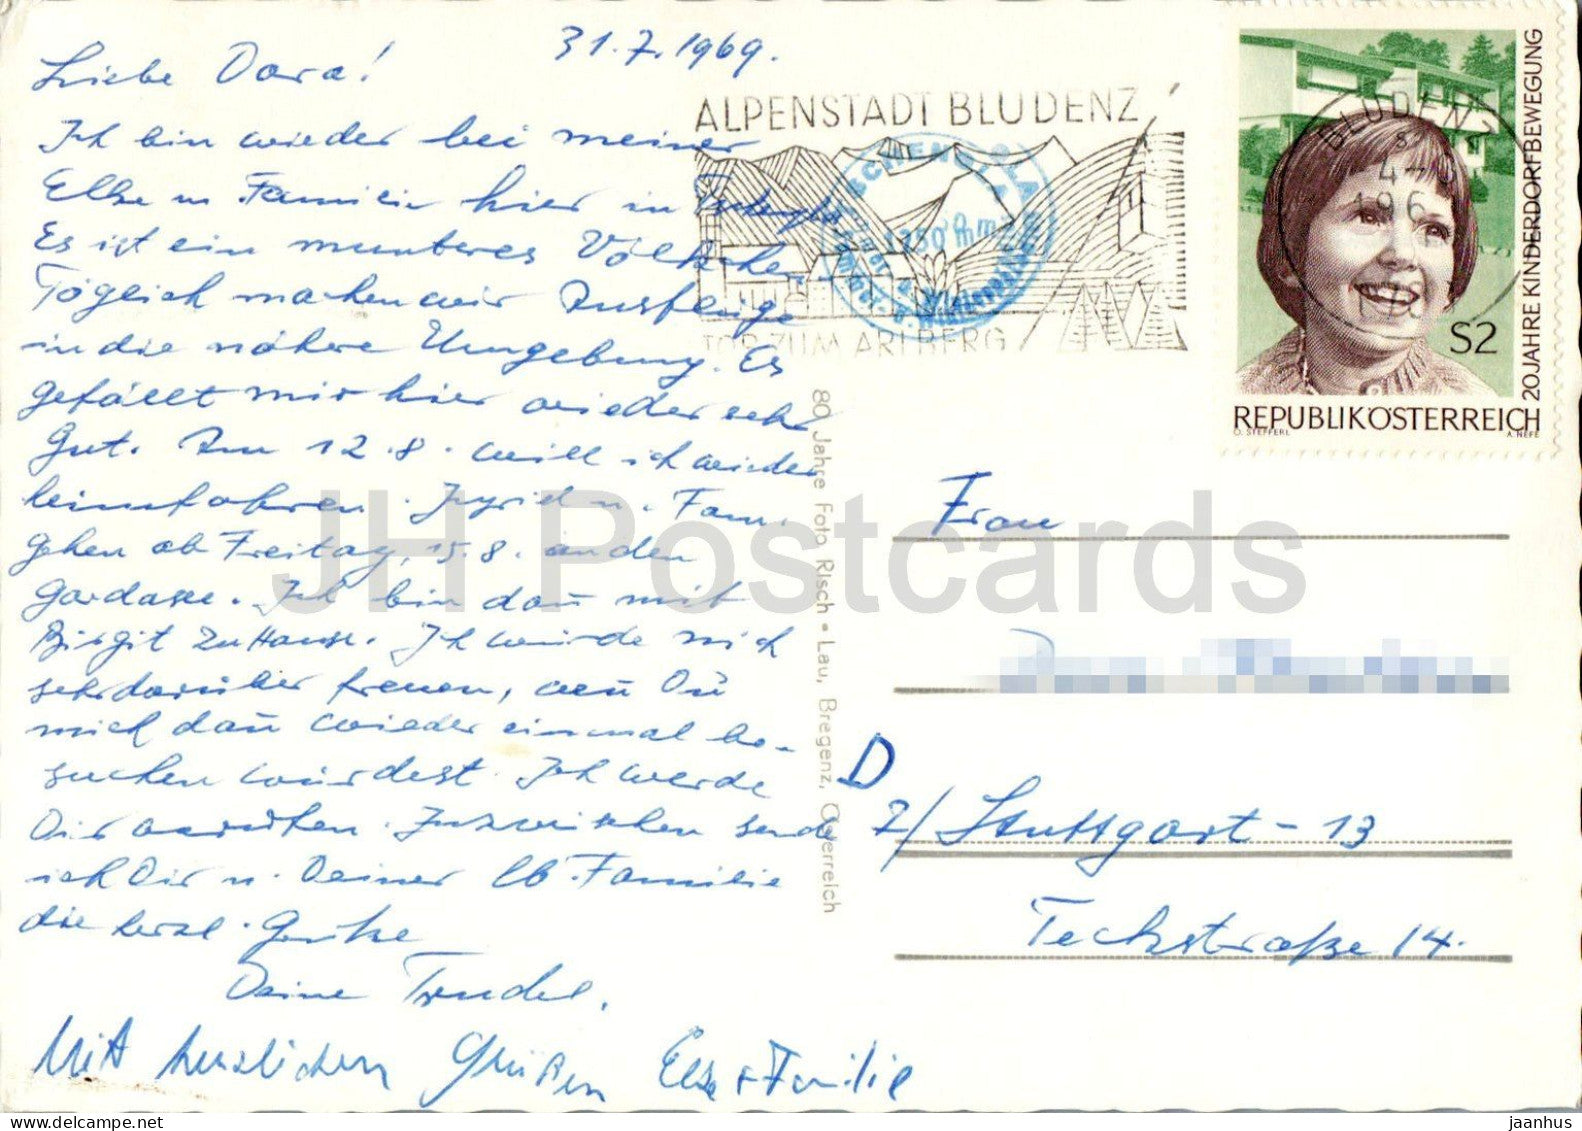 31.7.1969.
Liebe Dora!
Ich bin wieder bei meiner
Elke u Familie hier in
Es ist ein munteres Völkchen.
Täglich machen wir Ausflüge
in die nähere Umgebung. Es
gefällt mir hier wieder sehr
Gut. Am 12.8. will ich wieder
heimfahren. Ingrid u. Fam.
gehen ab Freitag, 15.8. an den
Gardasee. Ich bin dañ mit
Birgit zu Hause. Ich würde mich
sehr darüber freuen, weñ Du
mich dañ wieder einmal be-
suchen würdest. Ich werde
Dir anrufen. Inzwischen sende
ich Dir u. Deiner lb. Familie
die herzl. Grüße
Deine Trudel.
Mit herzlichen Grüßen Elke + Familie
ALPENSTADT BLUDENZ
TOR ZUM ARLBERG
1250 m
BLUDENZ
20 JAHRE KINDERDORFBEWEGUNG
S2
REPUBLIK ÖSTERREICH
O. STEFFERL A. NEFE
80 Jahre Foto Risch • Lau, Bregenz, Österreich
Frau
D
7/ Stuttgart-13
Teckstraße 14.
JH Postcards
jaanhus